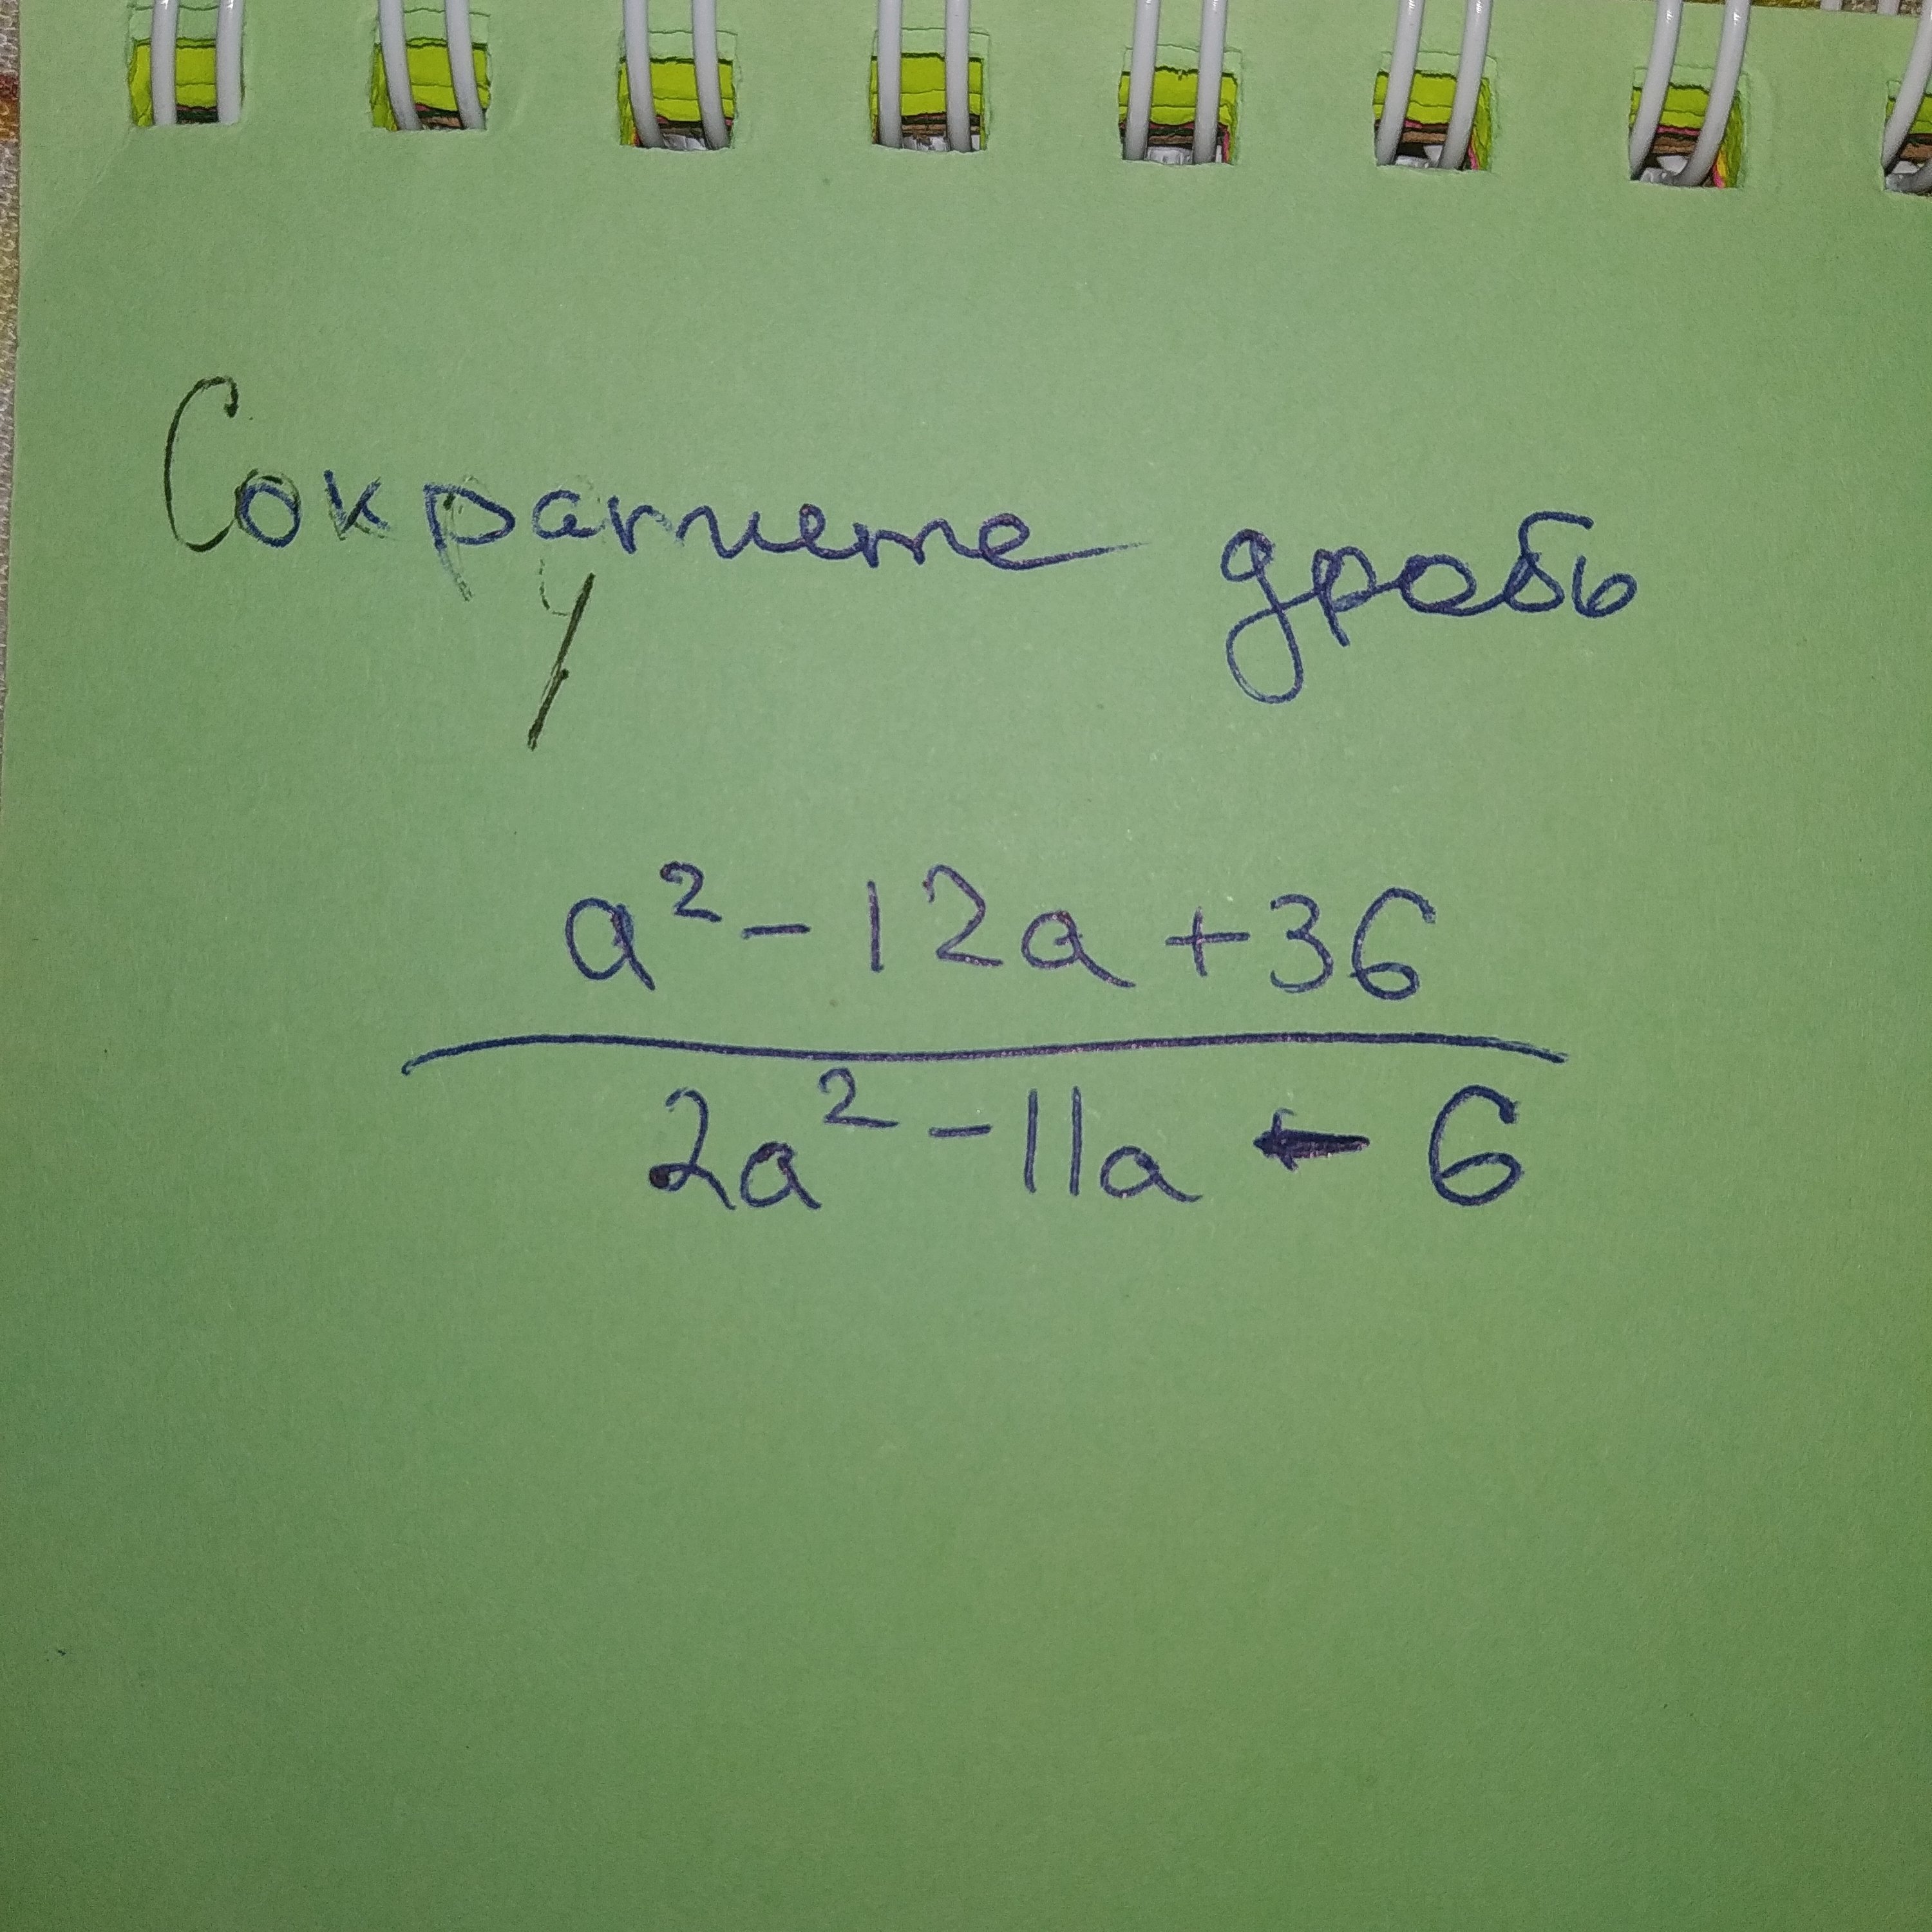 Сократите дробь
a² - 12a + 36
2a² - 11a - 6